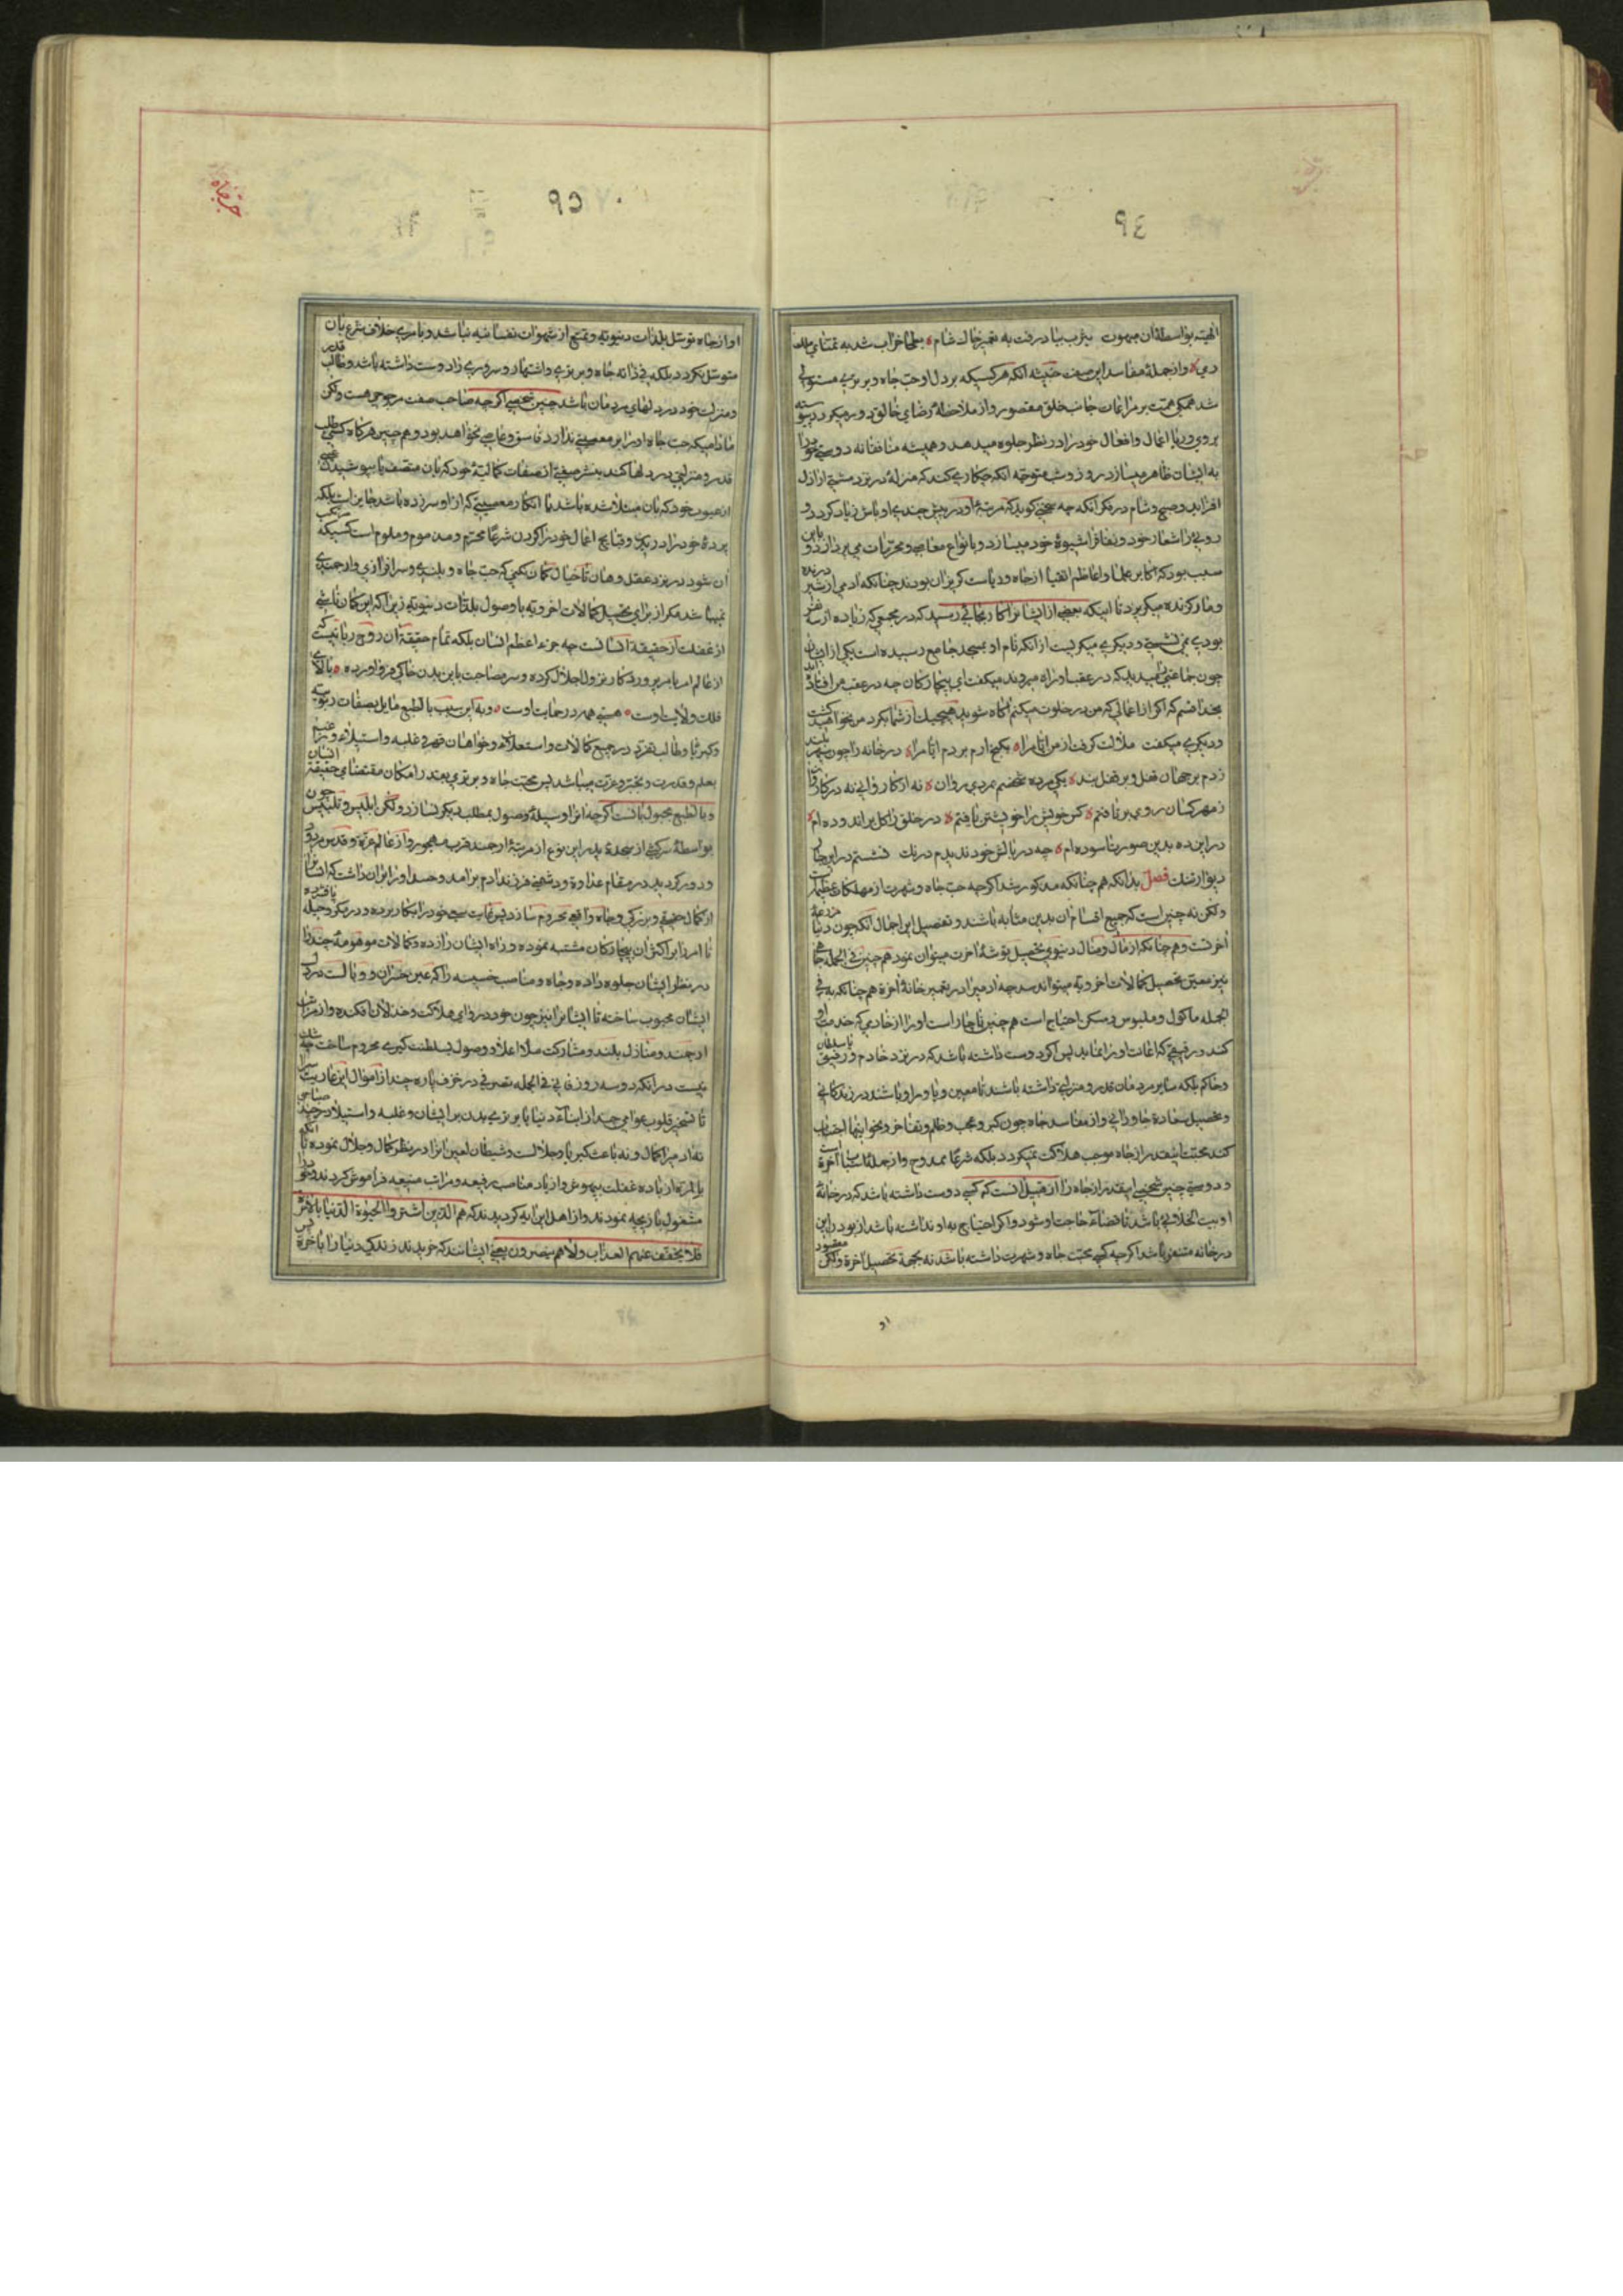 ٩٤
الهیه بواسطه ان مبهوت یثرب بباد رفت به تعمیر خاك شام ه بطحا خراب شد به تمنای ملك
ری ه و از جملهٔ مفاسد این صفت خبیثه انکه هر کسیکه بر دل او حب جاه و برتری مستولی
شد همکی همت بر مراعات جانب خلق مقصور و از ملاحظهٔ رضای خالق دور میکردد پیوسته
بروی و ریا اعمال و افعال خود را در نظر جلوه میدهد و همیشه منافقانه دوستی خود را
به ایشان ظاهر میسازد روز و شب متوجه انکه چکار می کند که منزلهٔ در نزد مشتی اراذل
افزاید و صبح و شام در فکر انکه چه سخنی کوید که مرتبهٔ او در پیش چندی اوباش زیاد کردد و
دروئی را شعار خود و نفاق را شیوهٔ خود میسازد و بانواع معاصی و محرمات می پردازد و باین
سبب بود که اکابر علما و اعاظم اتقیا از جاه و ریاست کریزان بودند چنانکه آدمی از شیر درنده
و مار کزنده میکریزد تا اینکه بعضی از ایشانرا کار بجائی رسید که در مجمعی که زیاده از سه نفر
بودی نمی نشستی و دیکری میکریست از انکه نام او بمسجد جامع رسیده است یکی از ایشان
چون جماعتی را میدید که در عقب او راه میروند میکفت ای بیچارکان چه در عقب من افتاده اید
بخدا قسم که اکر از اعمالی که من در خلوت میکنم اکاه شوید هیچیك از شما بکرد من نخواهید کشت
و دیکری میکفت ملالت کرفت از من ایام را ه بکنج ارم بردم ارام را ه در خانه را چون سپهر بلند
زدم بر جهان قفل و بر قفل بند ه یکی مرده شخصم بمردی روان ه نه از کاروانی نه در کاروان
ز مهر کسان روی برتافتم ه کس خویش را خویشتن یافتم ه در خلق را کل براندوده ام ه
در این ده بدین صورت اسوده ام ه چه در بالش خود ندیدم درنك نشستم در این چار
دیوار تنك فصل بدانکه هم چنانکه مذکور شد اکرچه حب جاه و شهرت از مهلکات عظیمه است
ولکن نه چنین است که جمیع اقسام ان بدین مثابه باشد و تفصیل این اجمال انکه چون دنیا مزرعهٔ
آخرتست و هم چنانکه از مال و منال دنیوی تحصیل توشهٔ اخرت میتوان نمود هم چنین فی الجمله جاهی
نیز معین تحصیل کمالات اخرویه میتواند شد چه ادمی را در تعمیر خانهٔ اخرة هم چنانکه به فی
الجمله ماکول و ملبوس و مسکن احتیاج است هم چنین ناچار است او را از خادمی که خدمت او
کند و رفیقی که اعانت او را نماید پس اکر دوست داشته باشد که در نزد خادم و رفیق یا سلطان
و حاکم بلکه سایر مردمان قدر و منزلتی داشته باشد تا معین و یاور او باشند در زندکانی
و تحصیل سعادة جاودانی و از مفاسد جاه چون کبر و عجب و ظلم و تفاخر و نحو اینها اجتناب
کند محبت اینقدر از جاه موجب هلاکت نمیکردد بلکه شرعا ممدوح و از جمله اسباب آخرة است
و دوستی چنین شخصی اینقدر از جاه را از قبیل انست که کسی دوست داشته باشد که در خانهٔ
او بیت الخلائی باشد تا قضاء حاجت او شود و اکر احتیاج به او نداشته باشد از بودن این
در خانه متنفر باشد اکرچه کسی محبت جاه و شهرت داشته باشد نه بجهة تحصیل آخرة ولکن مقصود
او
حب جاه
٩٥
او از جاه توسل بلذات دنیویه و تمتع از شهوات نفسانیه نباشد و بامری خلاف شرع بان
متوسل نکردد بلکه فی ذاته جاه و برتری و اشتهار و سروری را دوست داشته باشد و طالب قدر
و منزلت خود در دلهای مردمان باشد چنین شخصی اکرچه صاحب صفت مرجوحی هست ولکن
مادامیکه حب جاه او را بر معصیتی ندارد فاسق و عاصی نخواهد بود و هم چنین هرکاه کسی طلب
قدر و منزلتی در دلها کند بنشر صفتی از صفات کمالیهٔ خود که بان متصف یا بپوشیدن عیبی
از عیوب خود که بان مبتلا شده باشد یا انکار معصیتی که از او سر زده باشد جایز است بلکه
پردهٔ خود را دریدن و قبایح اعمال خود را کردن شرعا محرم و مذموم و ملوم است کسیکه مرتکب
ان شود در نزد عقل و هان تا خیال کمان نکنی که حب جاه و بلندی و سرافرازی و ارجمندی
نمیباشد مکر از برای تحصیل کمالات اخرویه یا وصول بلذات دنیویه زیرا که این کمان ناشی
از غفلت از حقیقة انسانست چه جزء اعظم انسان بلکه تمام حقیقة ان روح ربانیست که
از عالم امر بامر پروردکار نزول اجلال کرده و سر مصاحبت باین بدن خاکی فرود اورده ه بالای
فلك ولایت اوست ه هستی همه در حمایت اوست ه و به این سبب بالطبع مایل بصفات ربوبیه
و کبریا و طالب تفرد در جمیع کمالات و استعلاء و خواهان قهر و غلبه و استیلاء
بعلم و قدرت و تجبر و عزت میباشد پس محبت جاه و برتری بقدر امکان مقتضای حقیقة انسان
و بالطبع مجبول بانست اکرچه انرا وسیلهٔ وصول بمطلب دیکر نسازد ولکن ابلیس پر تلبیس چون
بواسطهٔ سرکشی از سجدهٔ پدر این نوع از مرتبهٔ ارجمند قرب مهجور و از عالم عزة و قدس مردود
و دور کردید در مقام عداوة و دشمنی فرزند ادم برامد و حسد او را بران داشت که انسان را
از کمال حقیقی و بزرکی و جاه واقعی محروم سازد پس غایت سعی خود را بکار برده و در مکر و حیله پا فشرده
تا امر را بر اکثر ان بیچارکان مشتبه نموده و راه ایشان را زده و کمالات موهومهٔ چند را
در نظر ایشان جلوه داده و جاه و مناصب خسیسه را که عین خسران و وبالست در دل
ایشان محبوب ساخته تا ایشانرا نیز چون خود در وادی هلاکت و خذلان افکنده و از مراتب
ارجمند و منازل بلند و مشارکت ملاء اعلا و وصول بسلطنت کبری محروم ساخت چه شك
نیست در انکه دو سه روز فانی فی الجمله تصرفی در خزف پاره چند از اموال این عاریت سرا
تا تسخیر قلوب عوامی چند از ابناء دنیا یا برتری بدن بر ایشان و غلبه و استیلاء در چند صباحی
نه از مراتب کمال و نه باعث کبریا و جلالست و شیطان لعین انرا در نظر کمال و جلال نموده تا انکه
بالمرة از باده غفلت بیهوش و از یاد مناصب رفیعه و مراتب منیعه فراموش کردند و خود را
مشغول بازیچه نمودند و از اهل این ایه کردیدند که هم الذین اشتروا الحیوة الدنیا بالاخرة
فلا یخفف عنهم العذاب ولا هم ینصرون یعنی ایشانند که خریدند زندکی دنیا را باخرة پس